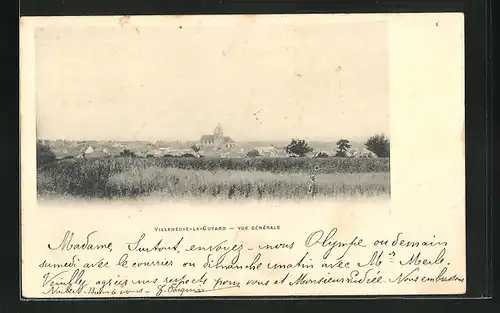 VILLENEUVE-LA-GUYARD — VUE GÉNÉRALE
Madame, Surtout, envoyez-nous Olympe ou demain
samedi avec le courrier ou dimanche matin avec Mr Merle.
Veuillez agréer nos respects pour vous et Monsieur Nous embrassons
Norbert. à vous —